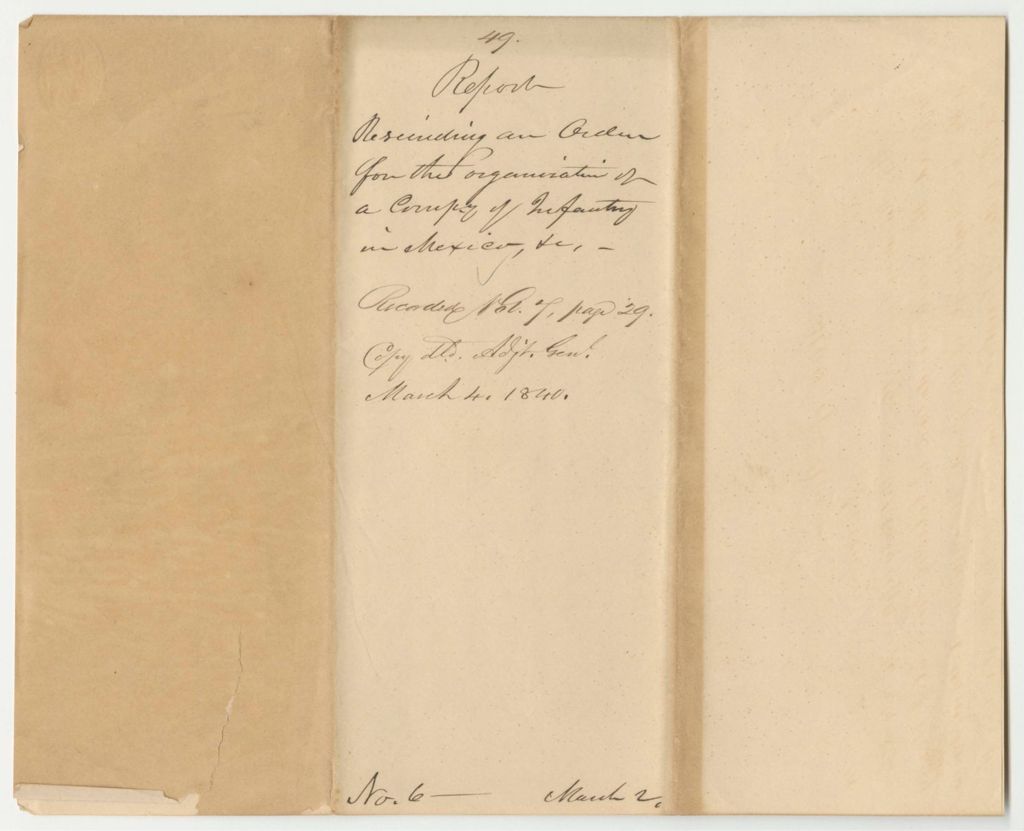 49.
Report
Rescinding an Order
for the organisation of
a Compy of Infantry
in Mexico, &c, –
Recorded Vol. 7, page 29.
Copy dld. Adjt. Genl.
March 4, 1840.
No. 6 — March 2,